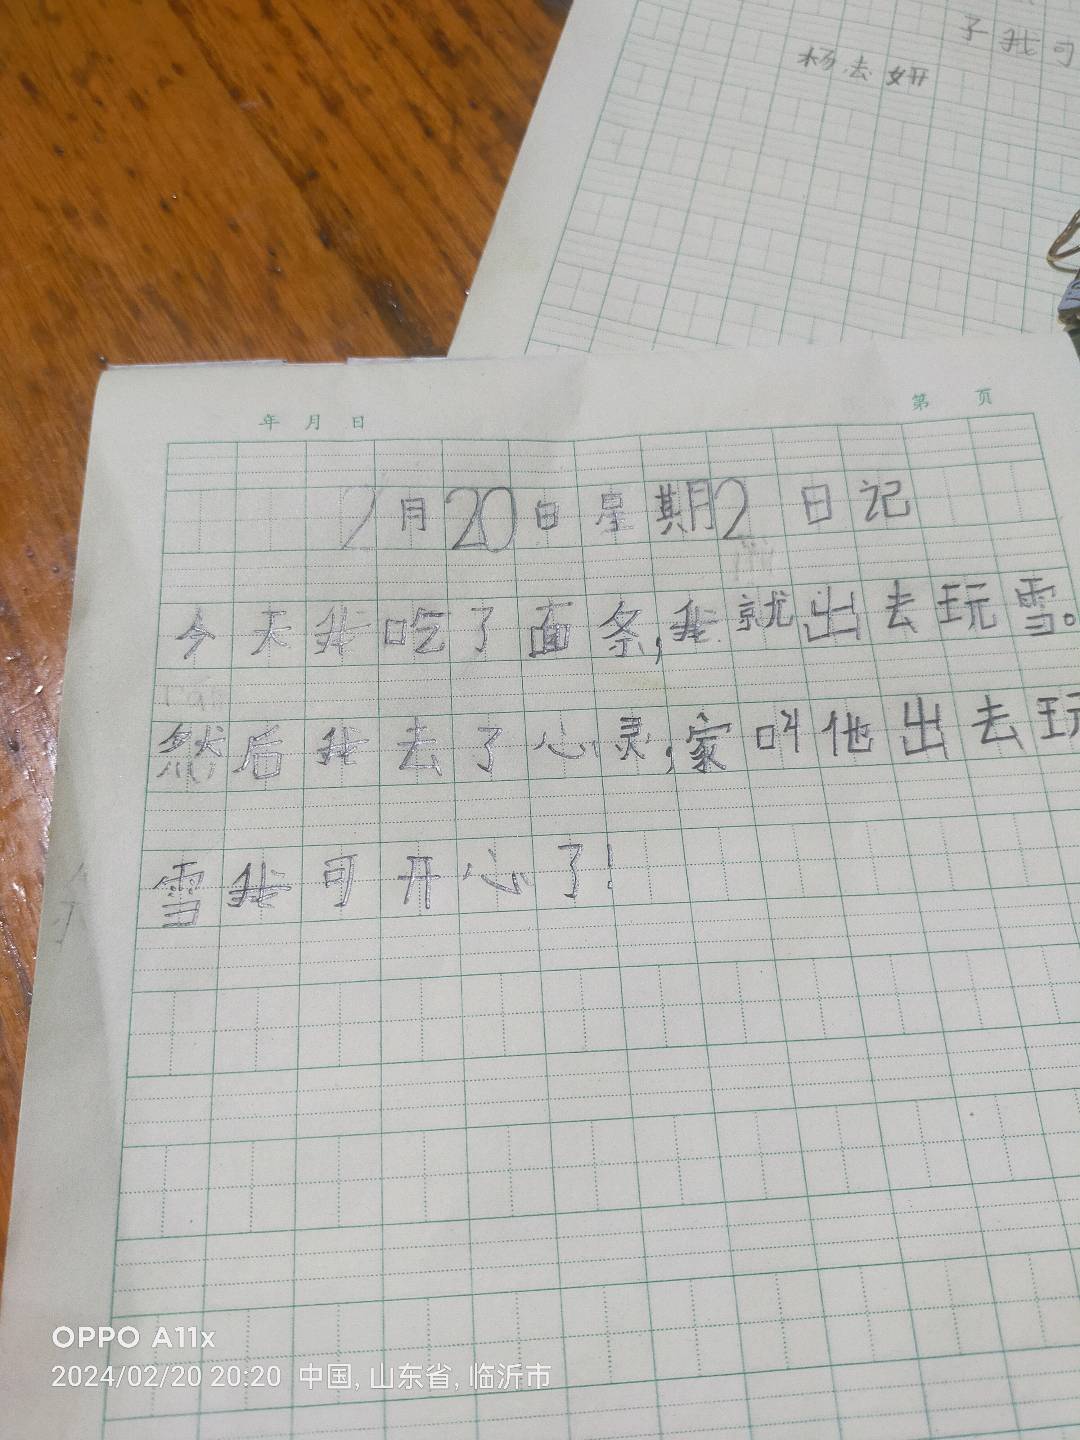 子我可
杨去妍
年 月 日 第 页
2月20日星期2 日记
今天我吃了面条,我就出去玩雪。
然后我去了心灵,家叫他出去玩
雪我可开心了!
OPPO A11x
2024/02/20 20:20 中国, 山东省, 临沂市